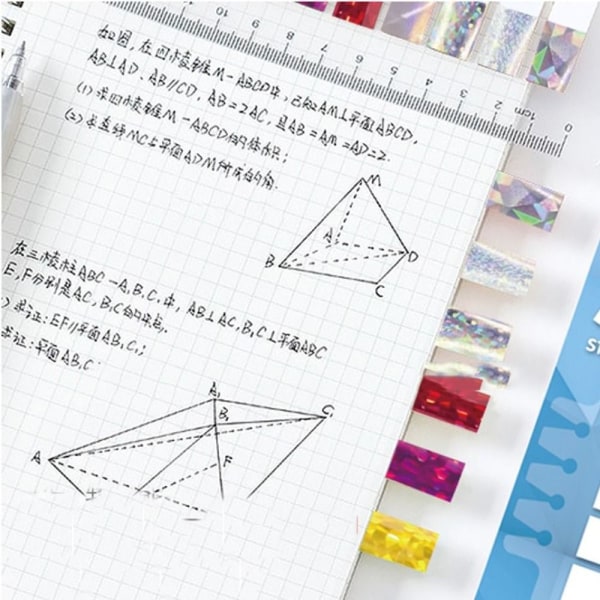 10 9 8 7 6 5 4 3 2 1cm 0
如图,在四棱锥M-ABCD中,已知AM⊥平面ABCD,
AB⊥AD,AB//CD,AB=2AC,且AB=AM=AD=2.
(1)求四棱锥M-ABCD的体积;
(2)求直线MC与平面ADM所成的角.
M
A
D
B
C
在三棱柱ABC-A₁B₁C₁中,AB⊥AC,B₁C⊥平面ABC
E,F分别是AC,B₁C的中点.
)求证:EF//平面AB₁C₁;
求证:平面AB₁C
A₁
B₁
C₁
A
F
ST